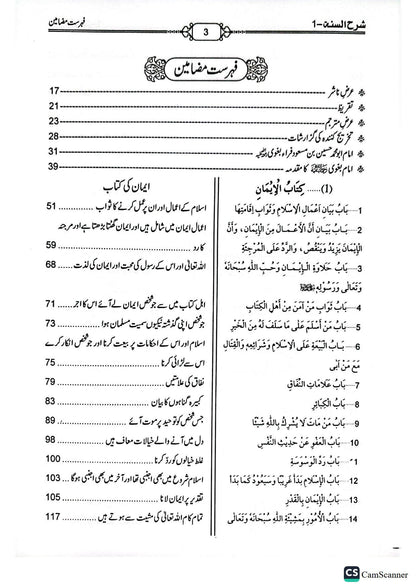 شرح السنة-1
3
فہرست مضامین
فہرست مضامین
عرض ناشر 17
تقریظ 21
عرض مترجم 23
تخریج کنندہ کی گزارشات 28
امام ابو محمد حسین بن مسعود فراء بغوی 31
امام بغوی کا مقدمہ 39
(1)..... كِتَابُ الْإِيْمَانِ
ایمان کی کتاب
1- بَابُ بَيَانِ أَعْمَالِ الْإِسْلَامِ وَثَوَابِ إِقَامَتِهَا
اسلام کے اعمال اور ان پر عمل کرنے کا ثواب 51
2- بَابُ بَيَانِ أَنَّ الْأَعْمَالَ مِنَ الْإِيْمَانِ، وَأَنَّ
ایمان میں اعمال شامل ہیں اور ایمان گھٹتا بڑھتا ہے اور مرجئہ
الْإِيْمَانَ يَزِيْدُ وَيَنْقُصُ، وَالرَّدِّ عَلَى الْمُرْجِئَةِ
کا رد 59
3- بَابُ حَلَاوَةِ الْإِيْمَانِ وَحُبِّ اللّٰهِ سُبْحَانَهُ
اللہ تعالی اور اس کے رسول کی محبت اور ایمان کی لذت 68
وَتَعَالٰى وَرَسُوْلِهِ ﷺ
4- بَابُ ثَوَابِ مَنْ آمَنَ مِنْ أَهْلِ الْكِتَابِ
اہل کتاب میں سے جو شخص ایمان لے آئے اس کا اجر 71
5- بَابُ مَنْ أَسْلَمَ عَلٰى مَا سَلَفَ لَهُ مِنَ الْخَيْرِ
جو شخص اپنی گذشتہ نیکیوں سمیت مسلمان ہوا 73
6- بَابُ الْبَيْعَةِ عَلَى الْإِسْلَامِ وَشَرَائِعِهِ وَالْقِتَالِ
اسلام اور اس کے احکامات پر بیعت کرنا اور جو شخص انکار کرے
مَعَ مَنْ أَبٰى
اس سے لڑائی کرنا 75
7- بَابُ عَلَامَاتِ النِّفَاقِ
نفاق کی علامتیں 79
8- بَابُ الْكَبَائِرِ
کبیرہ گناہوں کا بیان 83
9- بَابُ مَنْ مَاتَ لَا يُشْرِكُ بِاللّٰهِ شَيْئًا
جس شخص کو توحید پر موت آئے 89
10- بَابُ الْعَفْوِ عَنْ حَدِيْثِ النَّفْسِ
دل میں آنے والے خیالات معاف ہیں 98
بَابُ رَدِّ الْوَسْوَسَةِ
غلط خیالوں کو رد کرنا 100
12- بَابُ الْإِسْلَامِ بَدَأَ غَرِيْبًا وَسَيَعُوْدُ كَمَا بَدَأَ
اسلام شروع میں بھی اجنبی تھا اور آخر میں بھی اجنبی ہو گا 103
13- بَابُ الْإِيْمَانِ بِالْقَدَرِ
تقدیر پر ایمان لانا 105
14- بَابُ الْأُمُوْرِ بِمَشِيْئَةِ اللّٰهِ سُبْحَانَهُ وَتَعَالٰى
تمام کام اللہ تعالی کی مشیت سے ہوتے ہیں 117
CS CamScanner